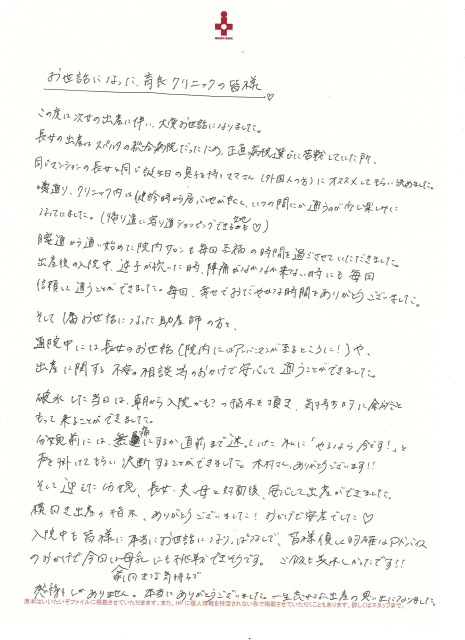 お世話になった、育良クリニックの皆様♡
この度は次女の出産に伴い、大変お世話になりました。
長女の出産はスパルタの総合病院だったため、正直病院選びに苦戦していた所、
同じマンションの長女と同じ歳の息子を持つママさん(外国人の方)にオススメしてもらい決めました。
噂通り、クリニック内は健診時から居心地が良く、いつの間にか通うのが楽しみに
なっていました。(帰り道に寄り道ショッピングできる立地も♡)
途中から通い始めた院内サロンも毎回至福の時間を過ごさせていただきました。
出産後の入院中、逆子が続いた時、陣痛がなかなか来ない時にも毎回
信頼して通うことができました。毎回、幸せでおだやかな時間をありがとうございました。
そしてお世話になった助産師の方々、
通院中には長女のお世話(院内にはアンパンマンが至るところに!)や、
出産に関する不安の相談等のおかげで安心して通うことができました。
破水した当日は、朝から入院かも?の指示を頂き、気持ち的に余裕をもって来ることができました。
分娩前には、無痛にするか直前まで迷っていた私に「やるなら今です!」と
声を掛けてもらい決断することができました。木村さん、ありがとうございます!!
そして迎えた分娩、長女、夫、母と対面後、安心して出産ができました。
横向き出産の指示、ありがとうございました!おかげで安産でした♡
入院中も皆様に本当にお世話になりっぱなしで、皆様優しく的確なアドバイス
のおかげで今回は母乳にも前向きな気持ちで挑戦できそうです。ご飯も美味しかったです!!
感謝しかありません。本当にありがとうございました。一生忘れない出産の思い出になりました。
原本はいいたいぞファイルに掲載させていただきます。また、HPに個人情報を特定されない形で掲載させていただくこともあります。詳しくはスタッフまで。